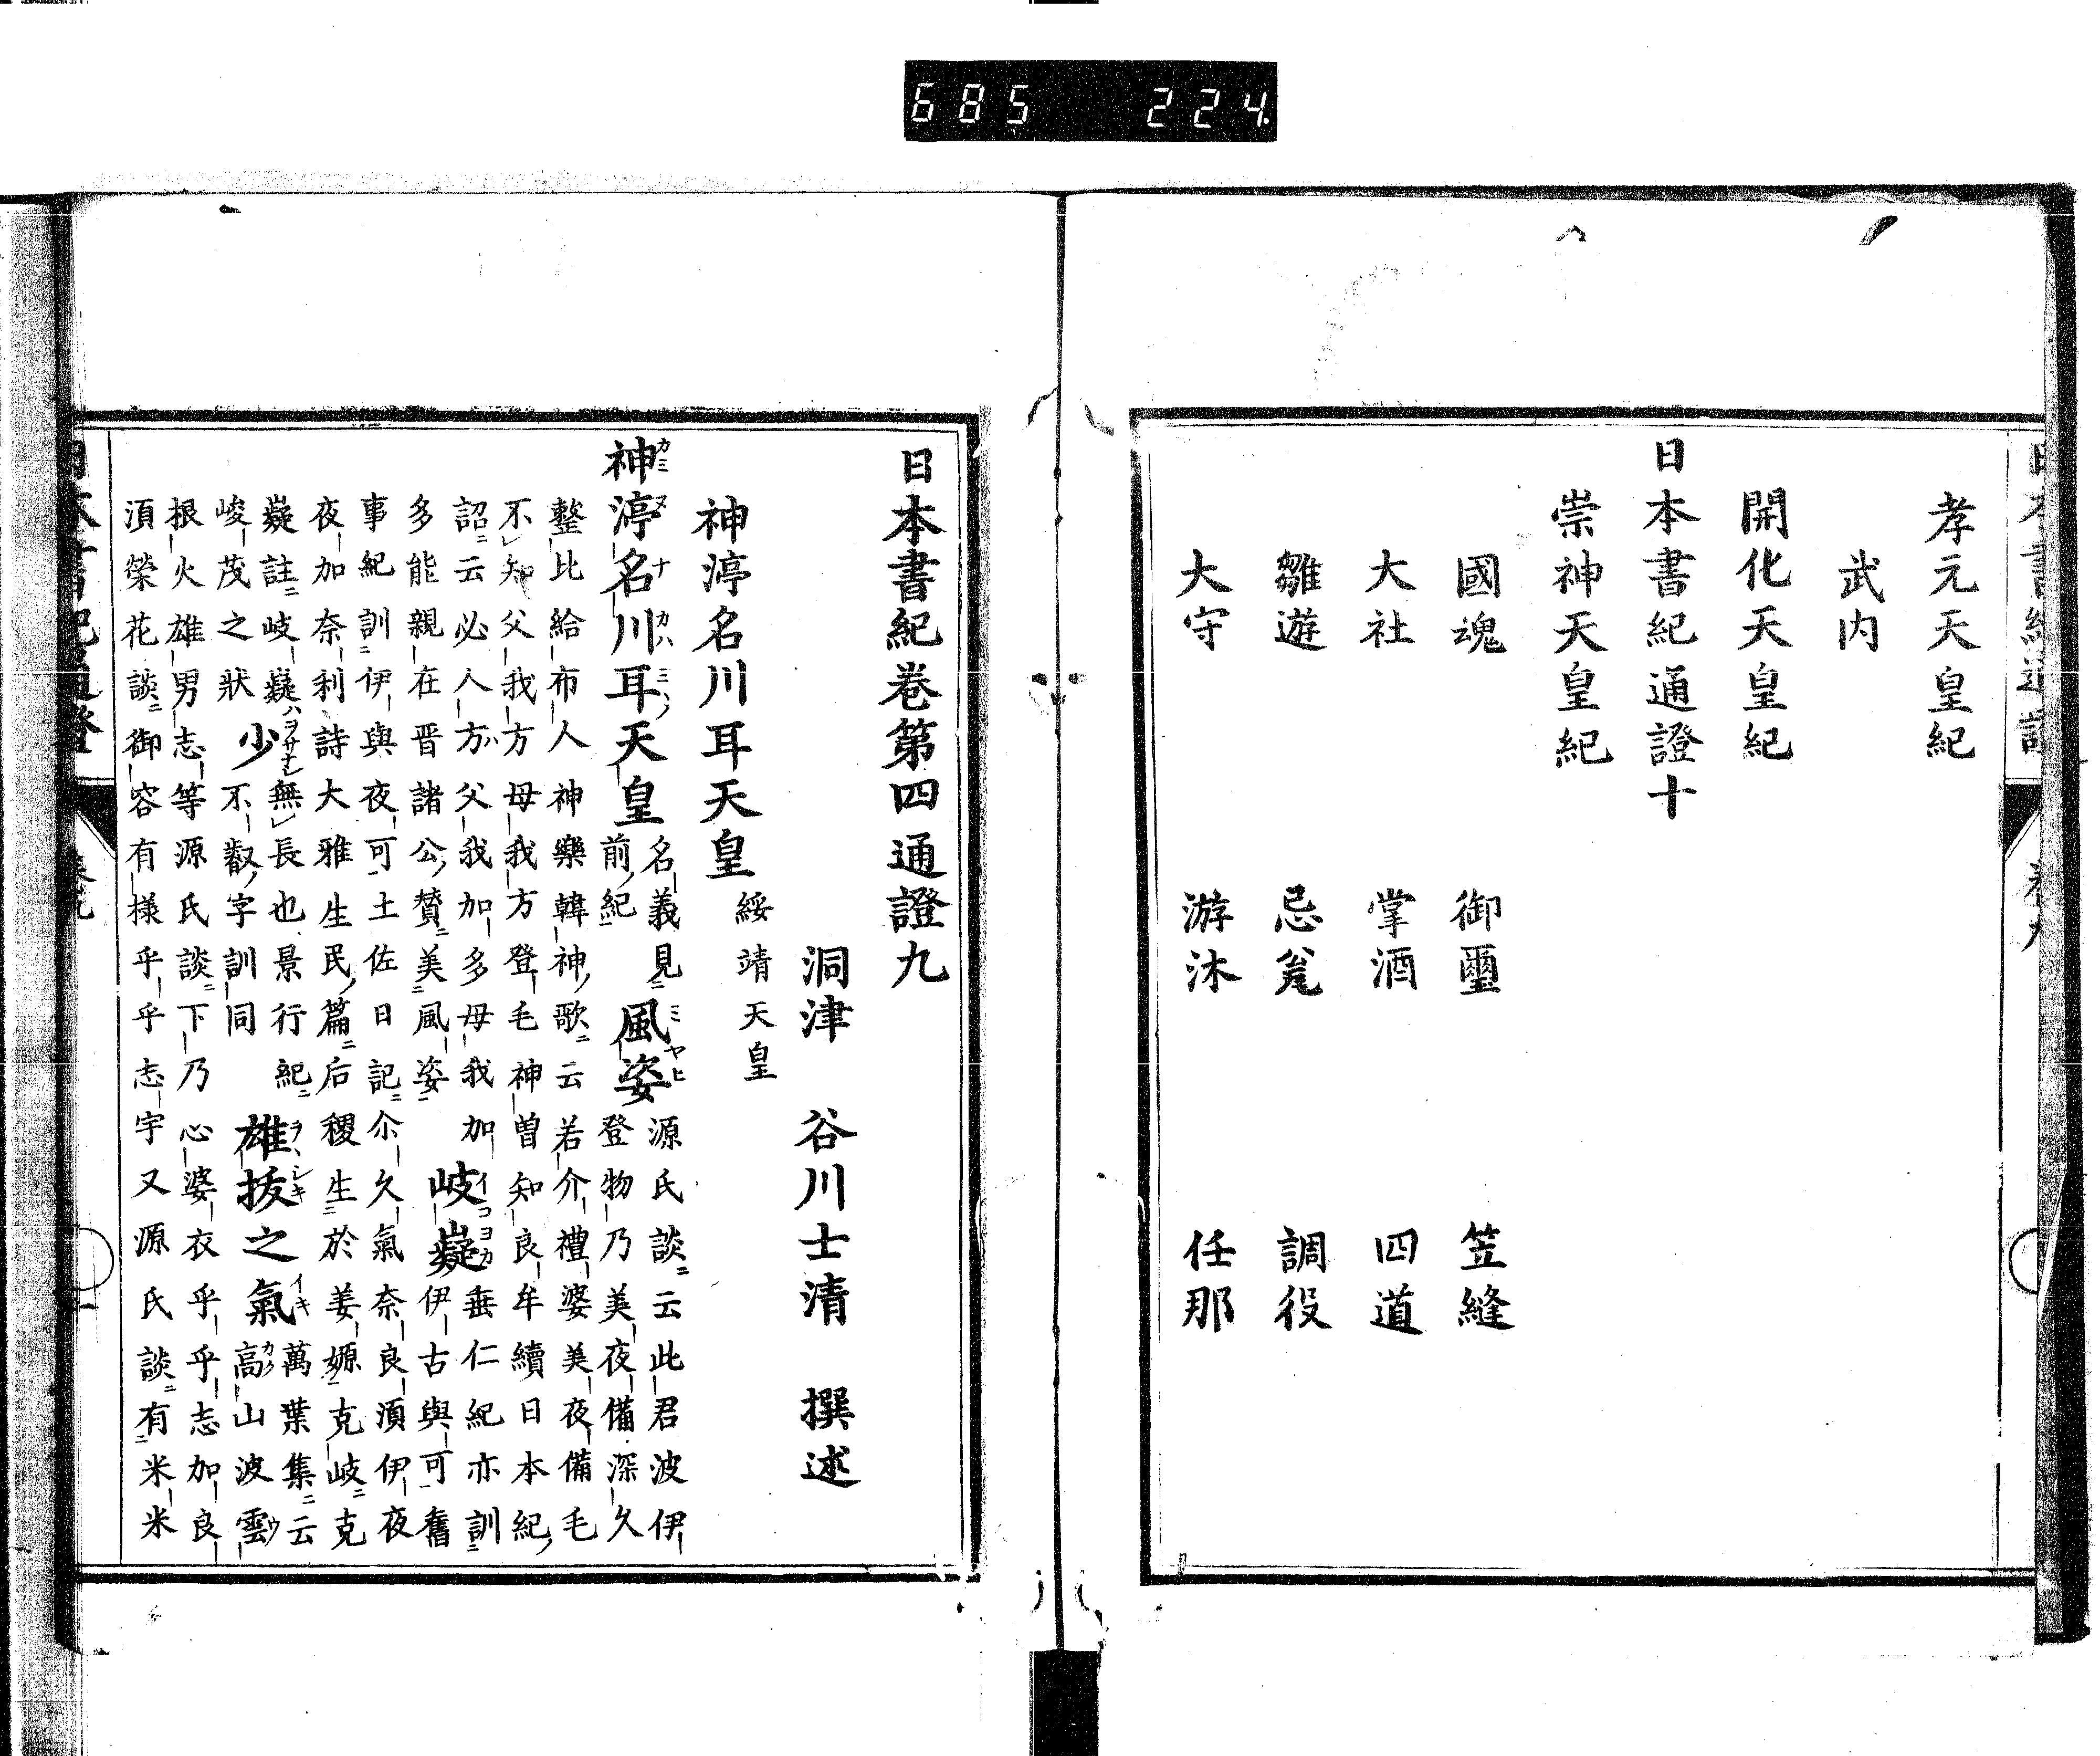 685 224
孝元天皇紀
武内
開化天皇紀
日本書紀通證十
崇神天皇紀
國魂 御璽 笠縫
大社 掌酒 四道
雛遊 忌瓮 調役
大守 游沐 任那
日本書紀卷第四通證九
洞津 谷川士清 撰述
神渟名川耳天皇 綏靖天皇
神渟名川耳天皇 名義見前紀 風姿 源氏談云此君波伊登物乃美夜備深久
整比給布人神樂韓神歌云若介禮婆美夜備毛
不知父我方母我方登毛神曽知良牟續日本紀
詔云必人方父我加多母我加多能親在晋諸公賛美風姿 岐嶷 垂仁紀亦訓伊古與可舊
事紀訓伊與夜可土佐日記尒久氣奈良湏伊夜
夜加奈利詩大雅生民篇后稷生於姜嫄克岐克
嶷註岐嶷峻茂之狀 少 無長也景行紀不叡字訓同 雄拔之氣 萬葉集云高山波雲
根火雄男志等源氏談下乃心婆衣乎乎志加良
湏榮花談御容有様乎乎志宇又源氏談有米米